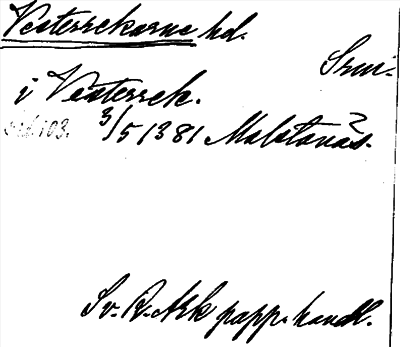 Vesterrekarne hd.
Srm.
i Vesterrek.
103. 3/5 1381 Malstanäs.
Sv. R. Ark papp. handl.